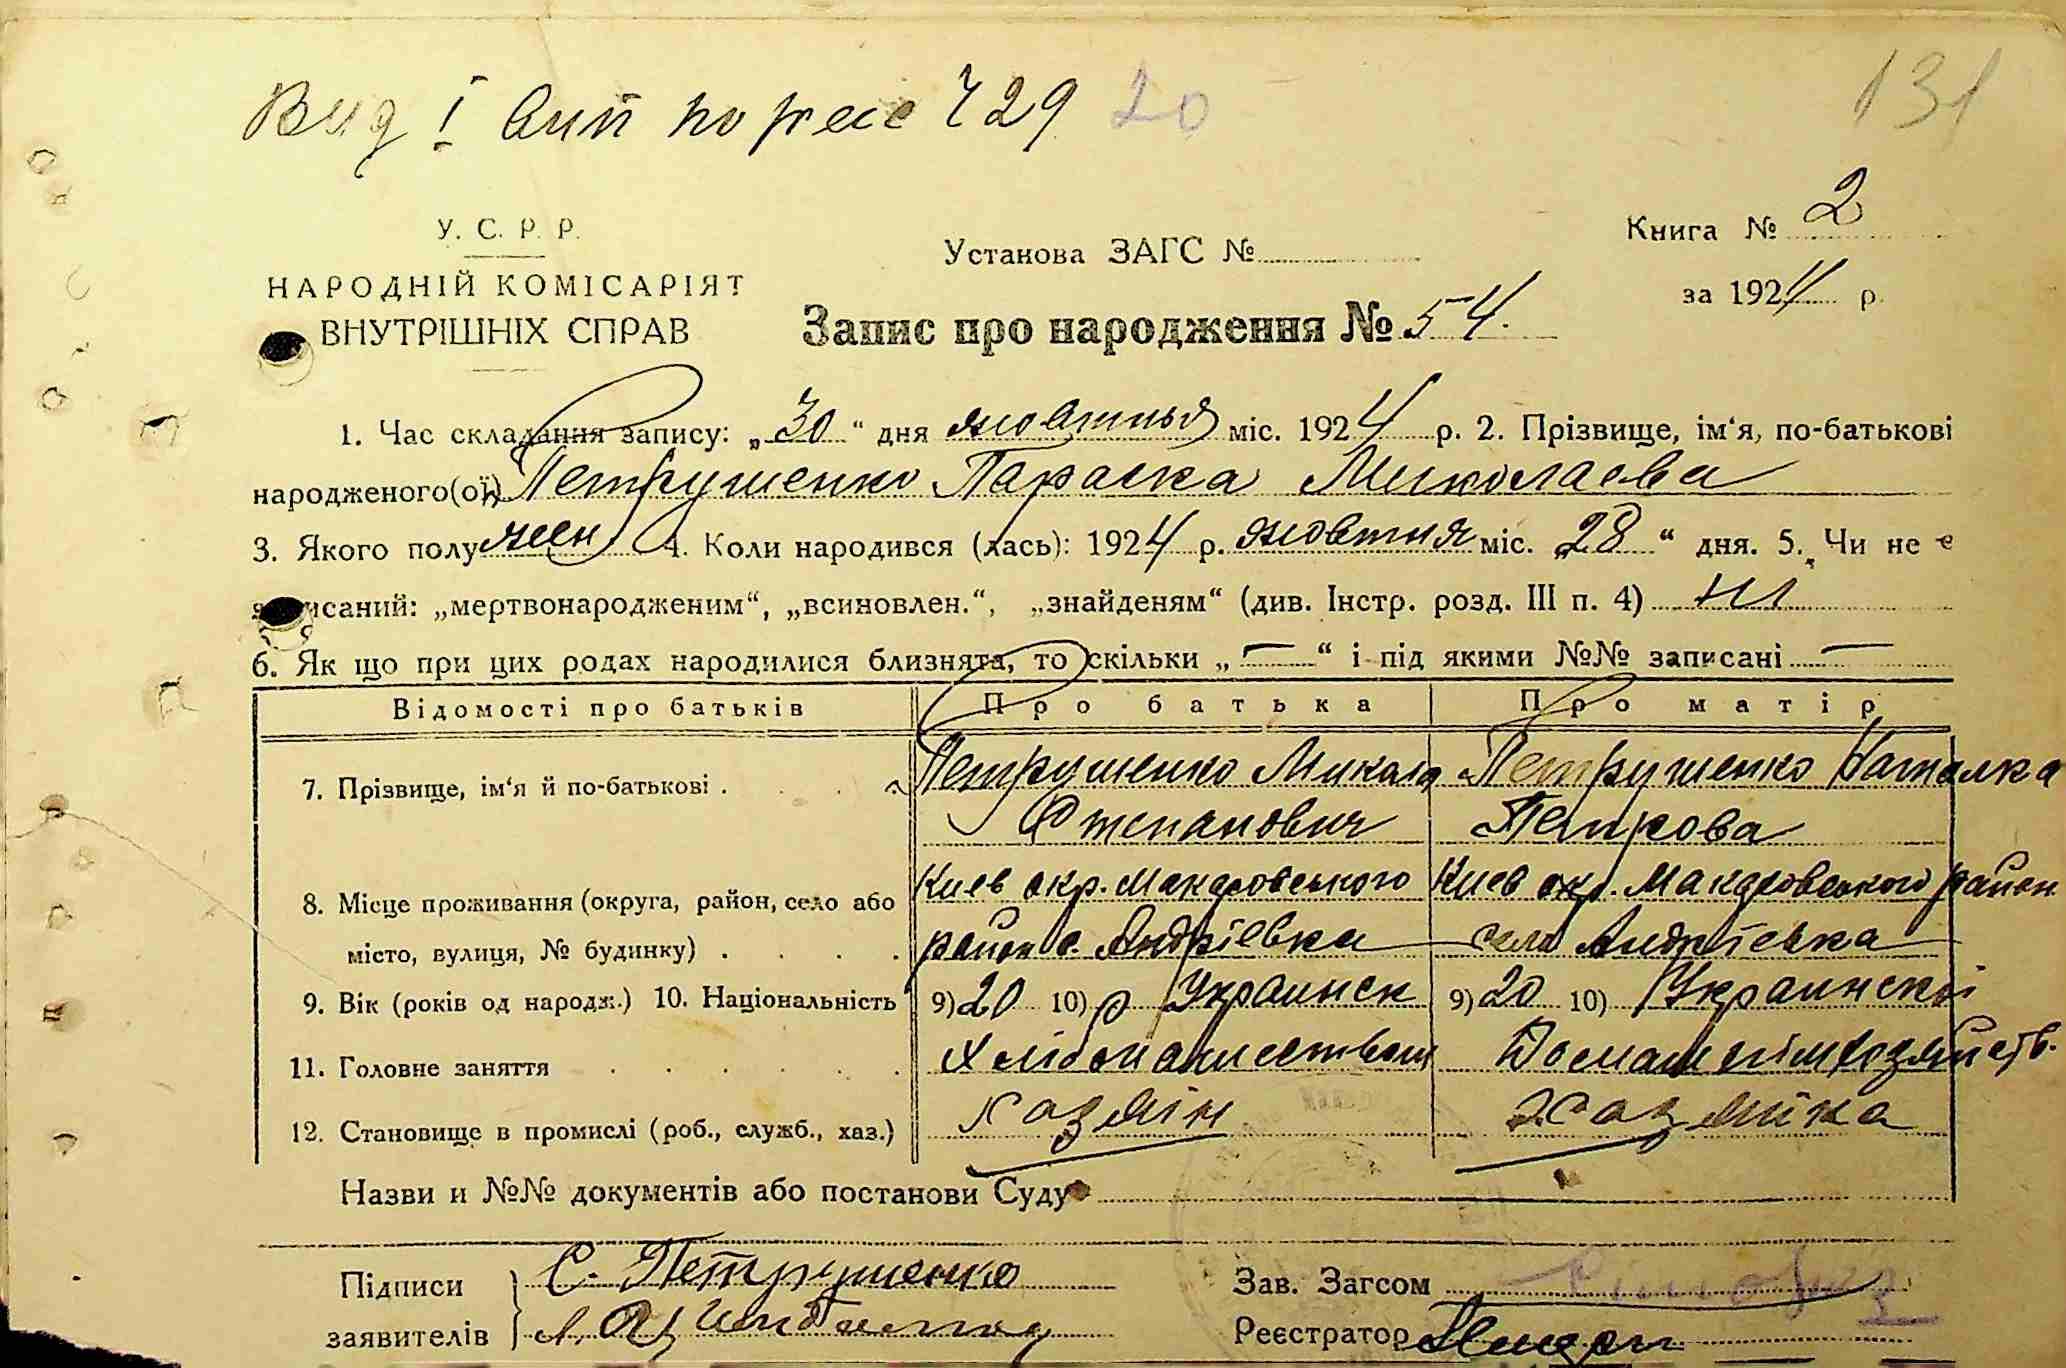 Вид І
729 20
131
У. С. Р. Р.
НАРОДНІЙ КОМІСАРІЯТ
ВНУТРІШНІХ СПРАВ
Установа ЗАГС №
Книга № 2
за 1924 р.
Запис про народження № 54.
1. Час складання запису: „30“ дня жовтня міс. 1924 р. 2. Прізвище, ім‘я, по-батькові
народженого(ої) Петрушенко Параска Миколаева
3. Якого полу жен 4. Коли народився (лась): 1924 р. жовтня міс. „28“ дня. 5. Чи не є
записаний: „мертвонародженим“, „всиновлен.“, „знайденям“ (див. Інстр. розд. III п. 4) ні
6. Як що при цих родах народилися близнята, то скільки „—“ і під якими №№ записані —
Відомості про батьків Про батька Про матір
7. Прізвище, ім‘я й по-батькові Петрушенко Микола Петрушенко Наталка
Степанович Петрова
Киев окр. Макаровського Киев окр. Макаровського район
8. Місце проживання (округа, район, село або
місто, вулиця, № будинку) район с. Андріевка село Андріевка
9. Вік (років од народж.) 10. Національність 9) 20 10) Украинск 9) 20 10) Украинскої
11. Головне заняття
12. Становище в промислі (роб., служб., хаз.) хазяін хазяйка
Назви и №№ документів або постанови Суду
Підписи С. Петрушенко Зав. Загсом
заявителів Реєстратор